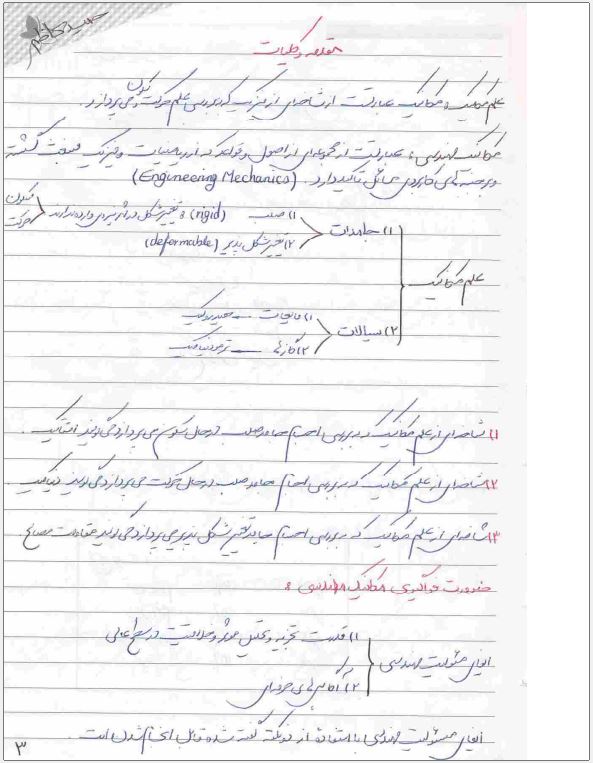 مقدمه و کلیات
علم مکانیک: مکانیک عبارتست از شاخه‌ای از فیزیک که به بررسی علم حرکت و سکون می پردازد.
مکانیک مهندسی: عبارتست از مجموعه‌ای از اصول و قواعد که از ریاضیات و فیزیک منبعث گشته
و بر جنبه‌های کاربردی مسائل تاکید دارد. (Engineering Mechanics)
علم مکانیک
۱) جامدات
۱) صلب (rigid): تغییر شکل در اثر نیروی وارده ندارند
سکون
حرکت
۲) تغییر شکل پذیر (deformable)
۲) سیالات
۱) مایعات — هیدرولیک
۲) گازها — ترمودینامیک
۱) شاخه‌ای از علم مکانیک که به بررسی اجسام جامد صلب در حال سکون می پردازد را گویند استاتیک.
۲) شاخه‌ای از علم مکانیک که به بررسی اجسام جامد صلب در حال حرکت می پردازد را گویند دینامیک.
۳) شاخه‌ای از علم مکانیک که به بررسی اجسام جامد تغییر شکل پذیر می پردازد را گویند مقاومت مصالح
ضرورت فراگیری مکانیک مهندسی:
ایفای مسئولیت مهندسی
۱) قدرت تجزیه و تحلیل و خلاقیت در سطح عالی
۲) آگاهی‌های حرفه‌ای
ایفای مسئولیت مهندسی با استفاده از دو نکته گفته شده قابل انجام شدن است.
۳